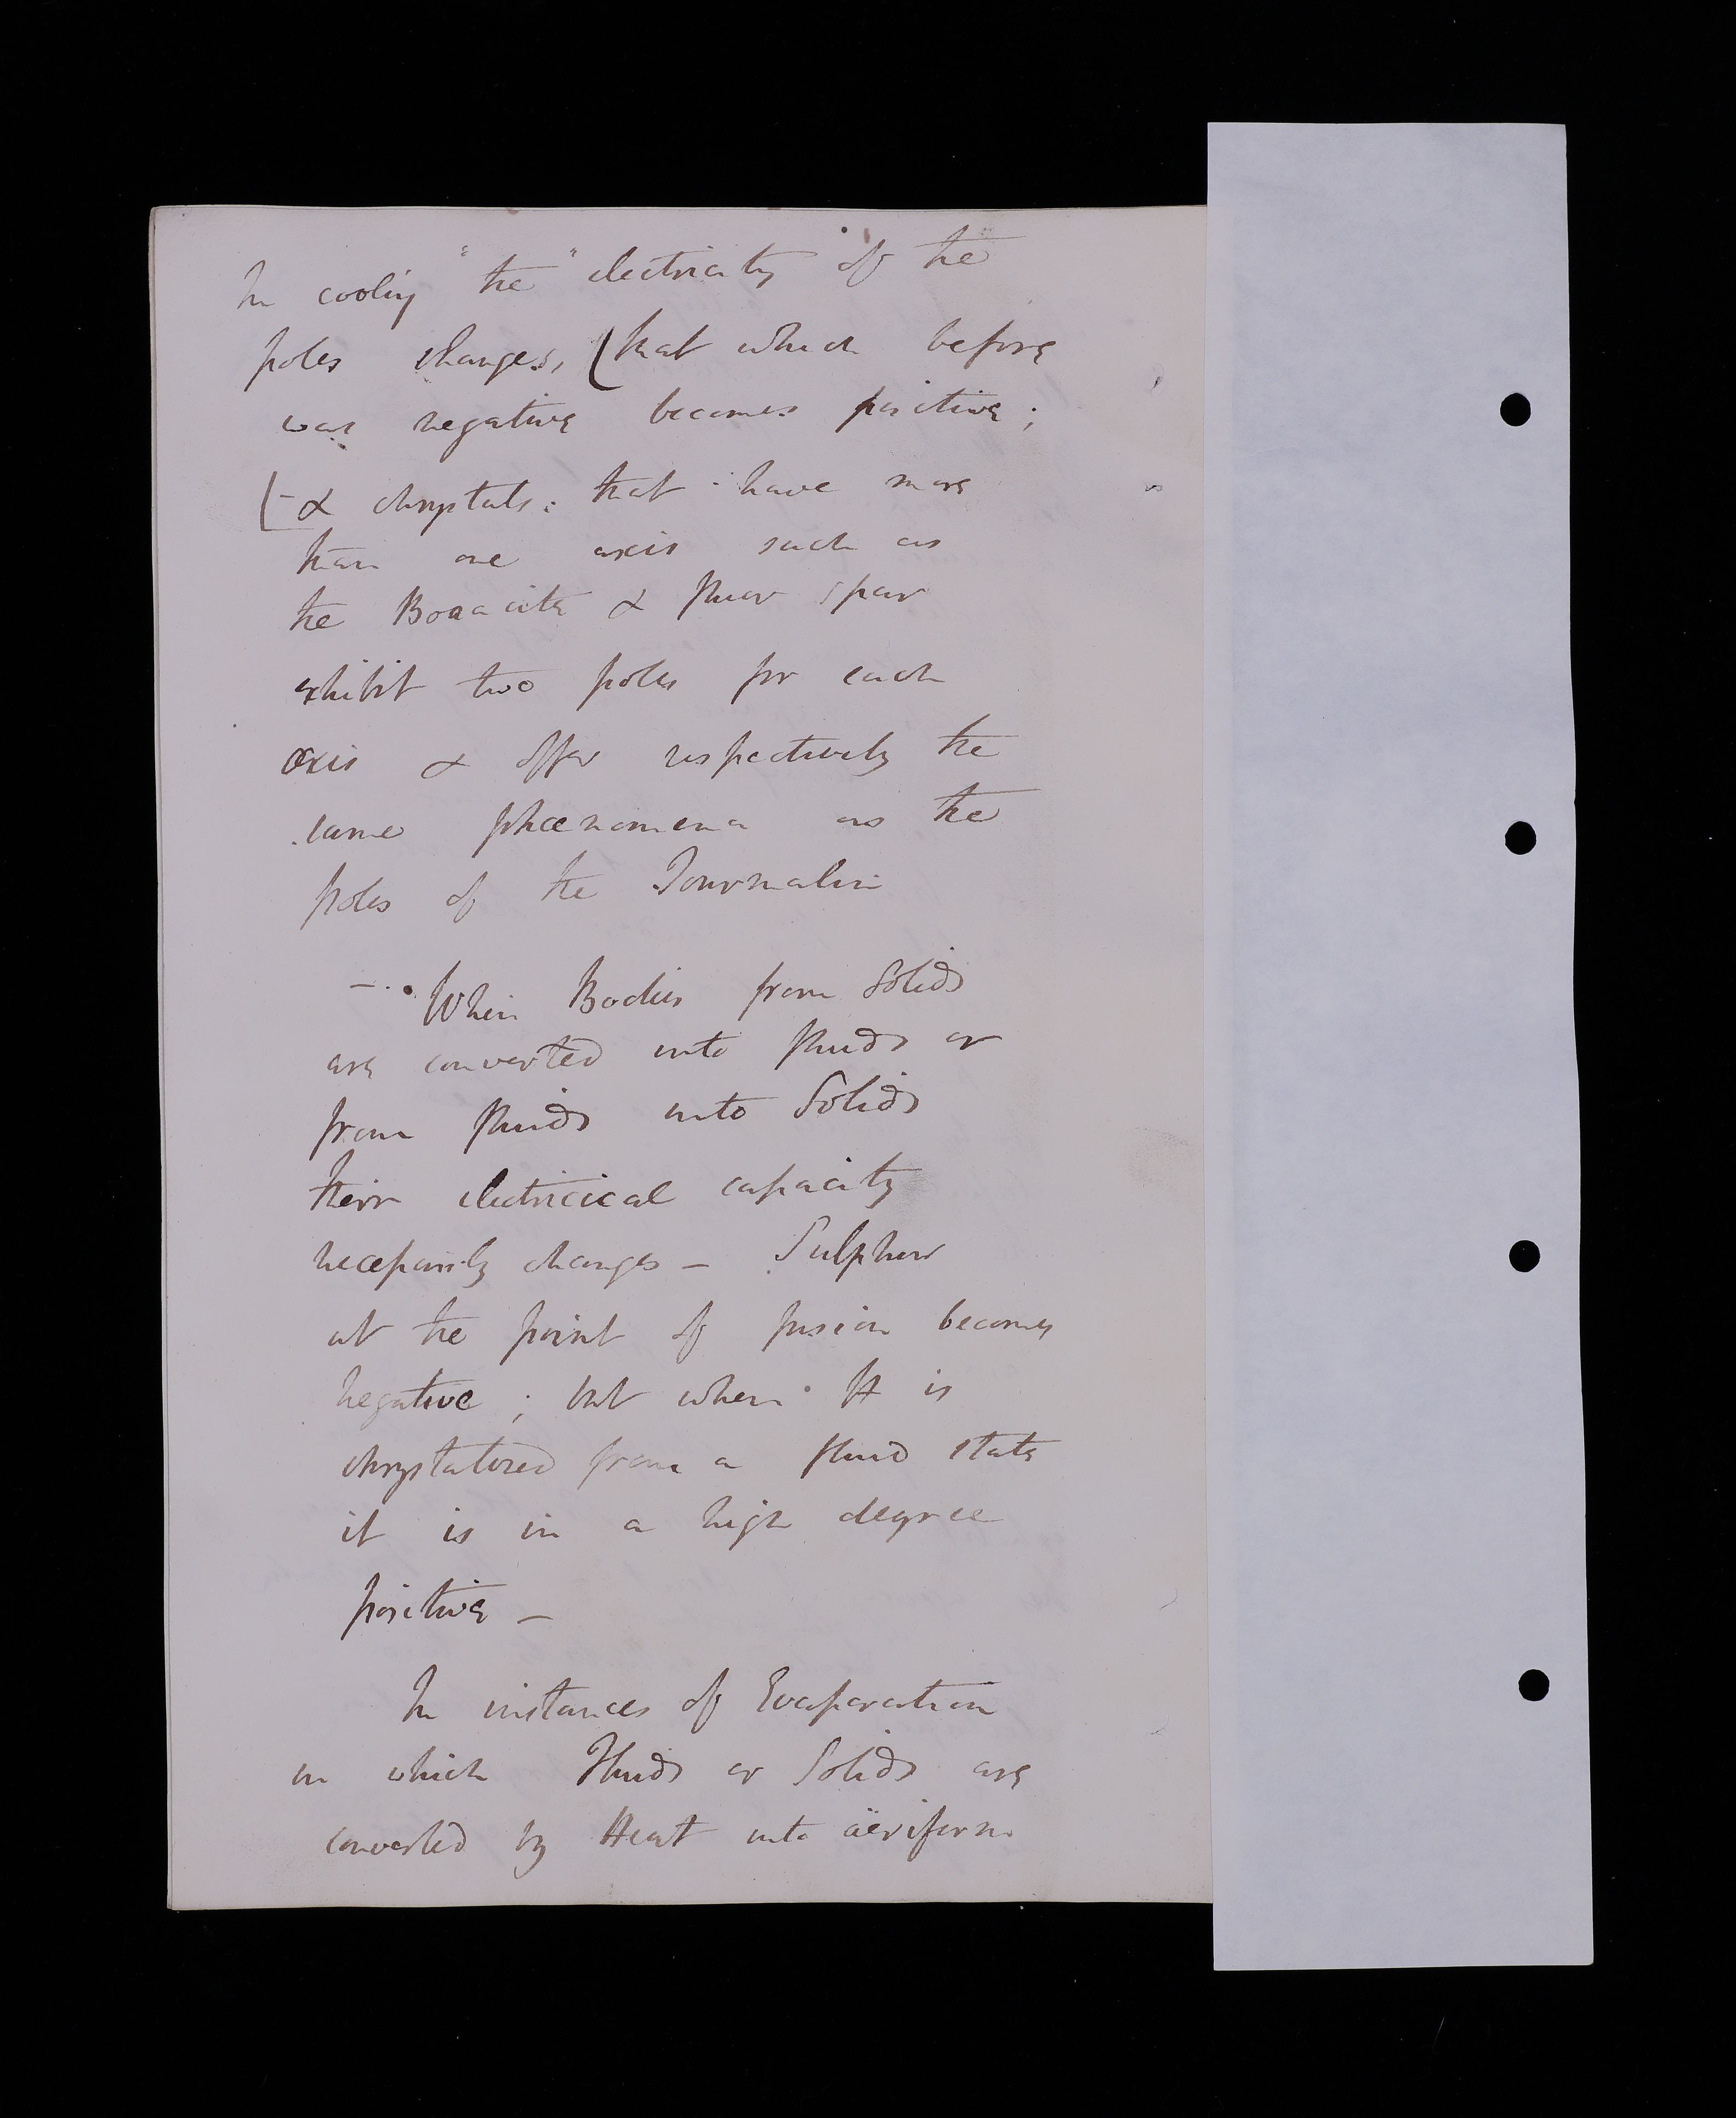 In cooling "the" electricity of the
poles changes, (that which before
was negative becomes positive;
[- & chrystals: that have more
than one axis such as
the Boracite & fluor spar
exhibit two poles for each
axis & offer respectively the
same phænomena as the
poles of the Tourmalin
- When Bodies from Solids
are converted into fluids or
from fluids into Solids
their electricical capacity
necessarily changes - Sulphur
at the point of fusion becomes
negative; but when It is
chrystalized from a fluid state
it is in a high degree
positive -
In instances of Evaporation
in which Fluids or Solids are
converted by Heat into äeriform